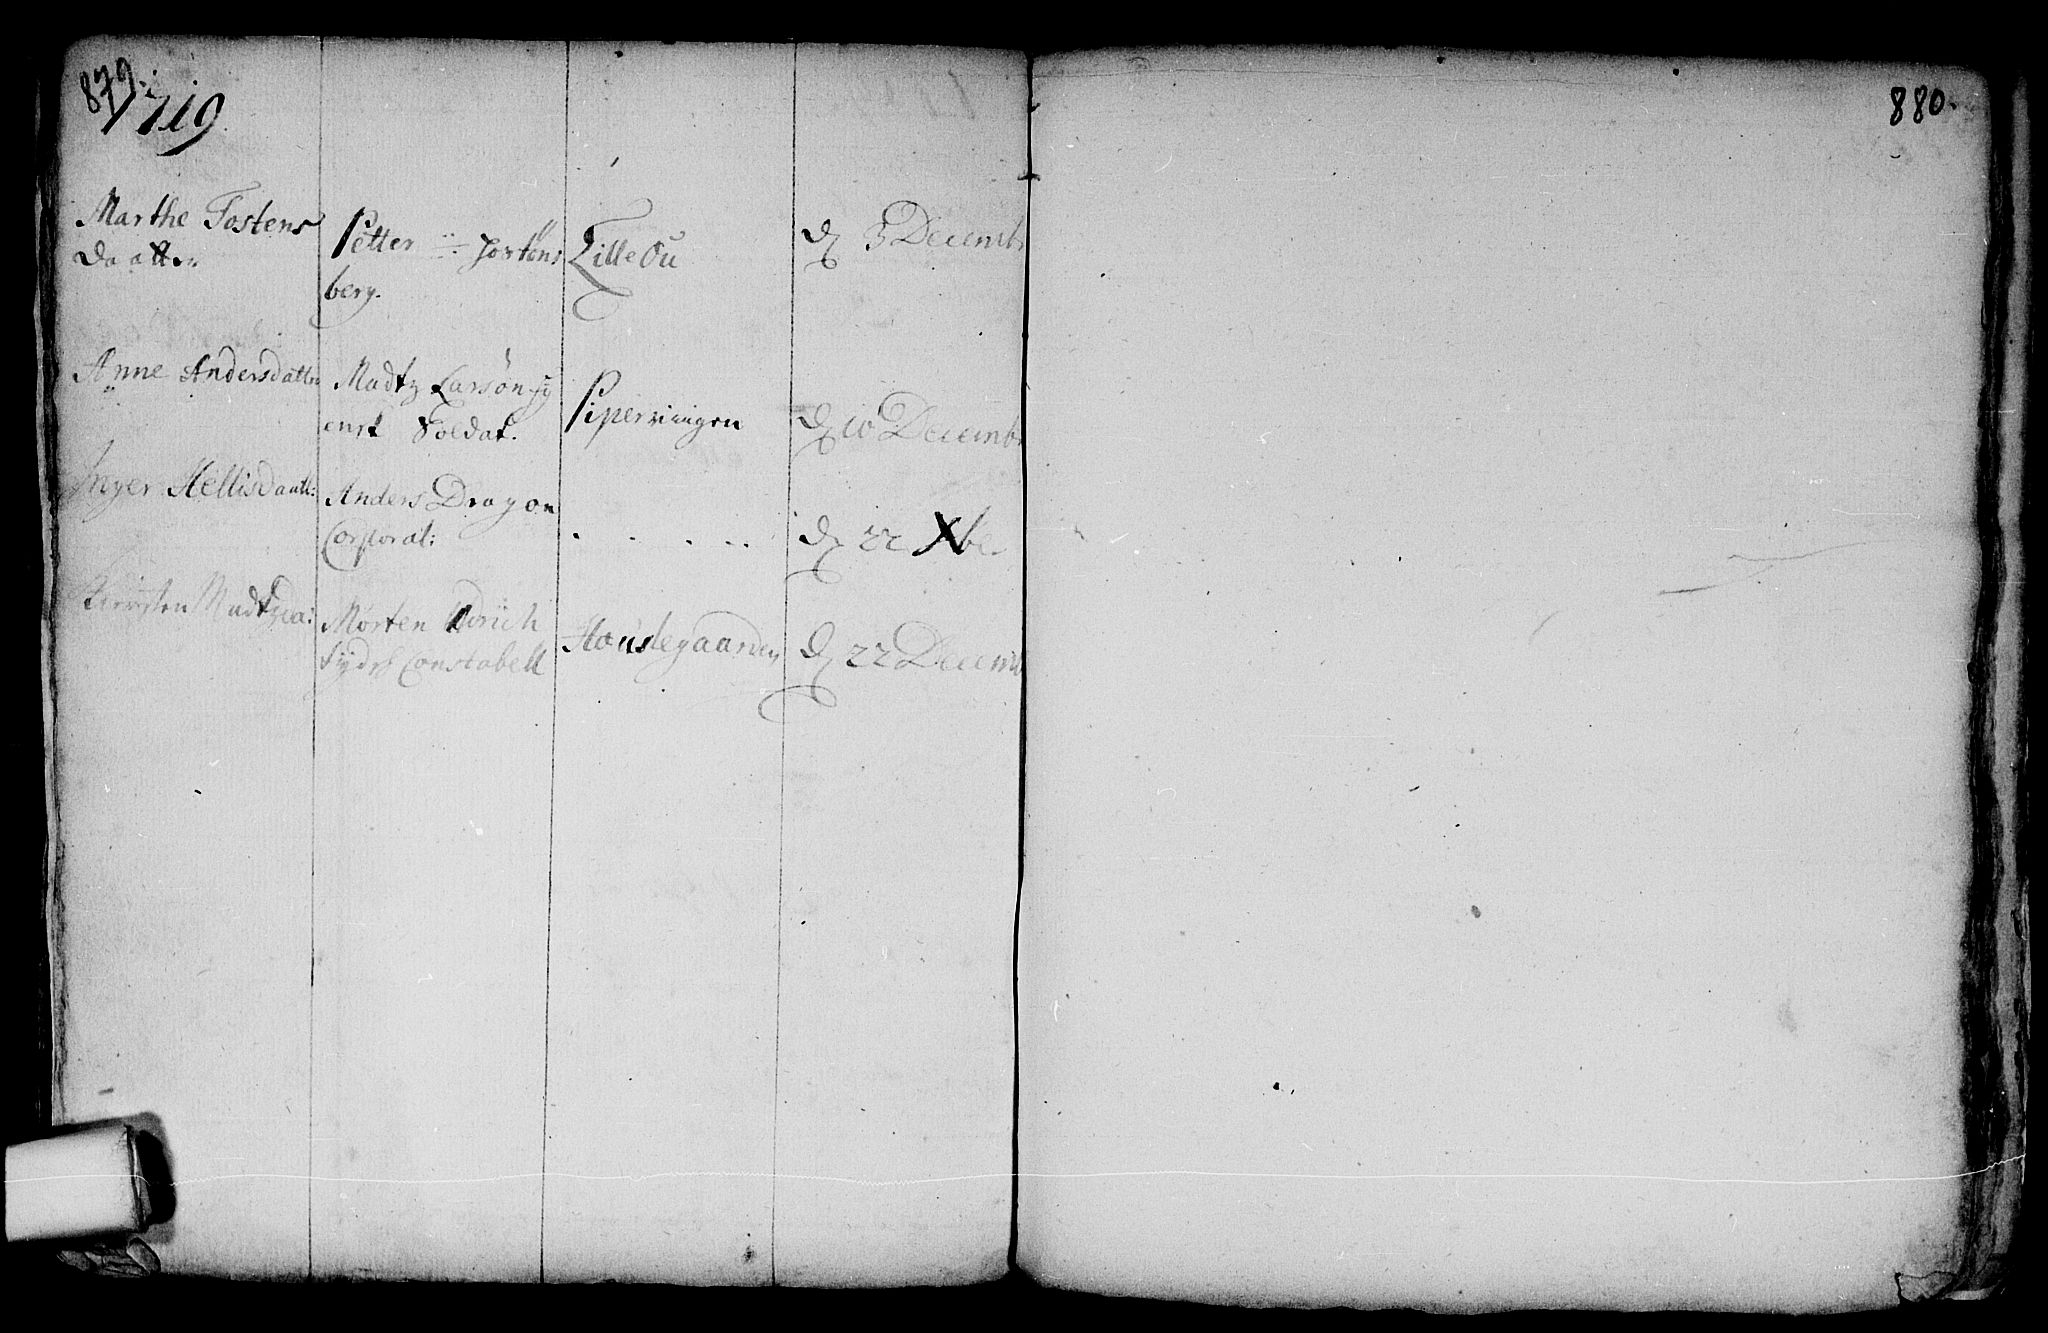 879.
1719
880.
Marthe Tostens
daatter
Petter Jortens
berg.
Lille Ou
d 3 Decemb
Anne Andersdatter
Madtz Larsön
Soldat.
Piperviingen
d 10 Decembr
Inger Hellisdaatt:
Anders Dragon
Corporal:
. . . . .
d 22 Xbe
Kiersten Madtzda:
Morten
Constabell
Hauslegaarden
d 22 Decemb